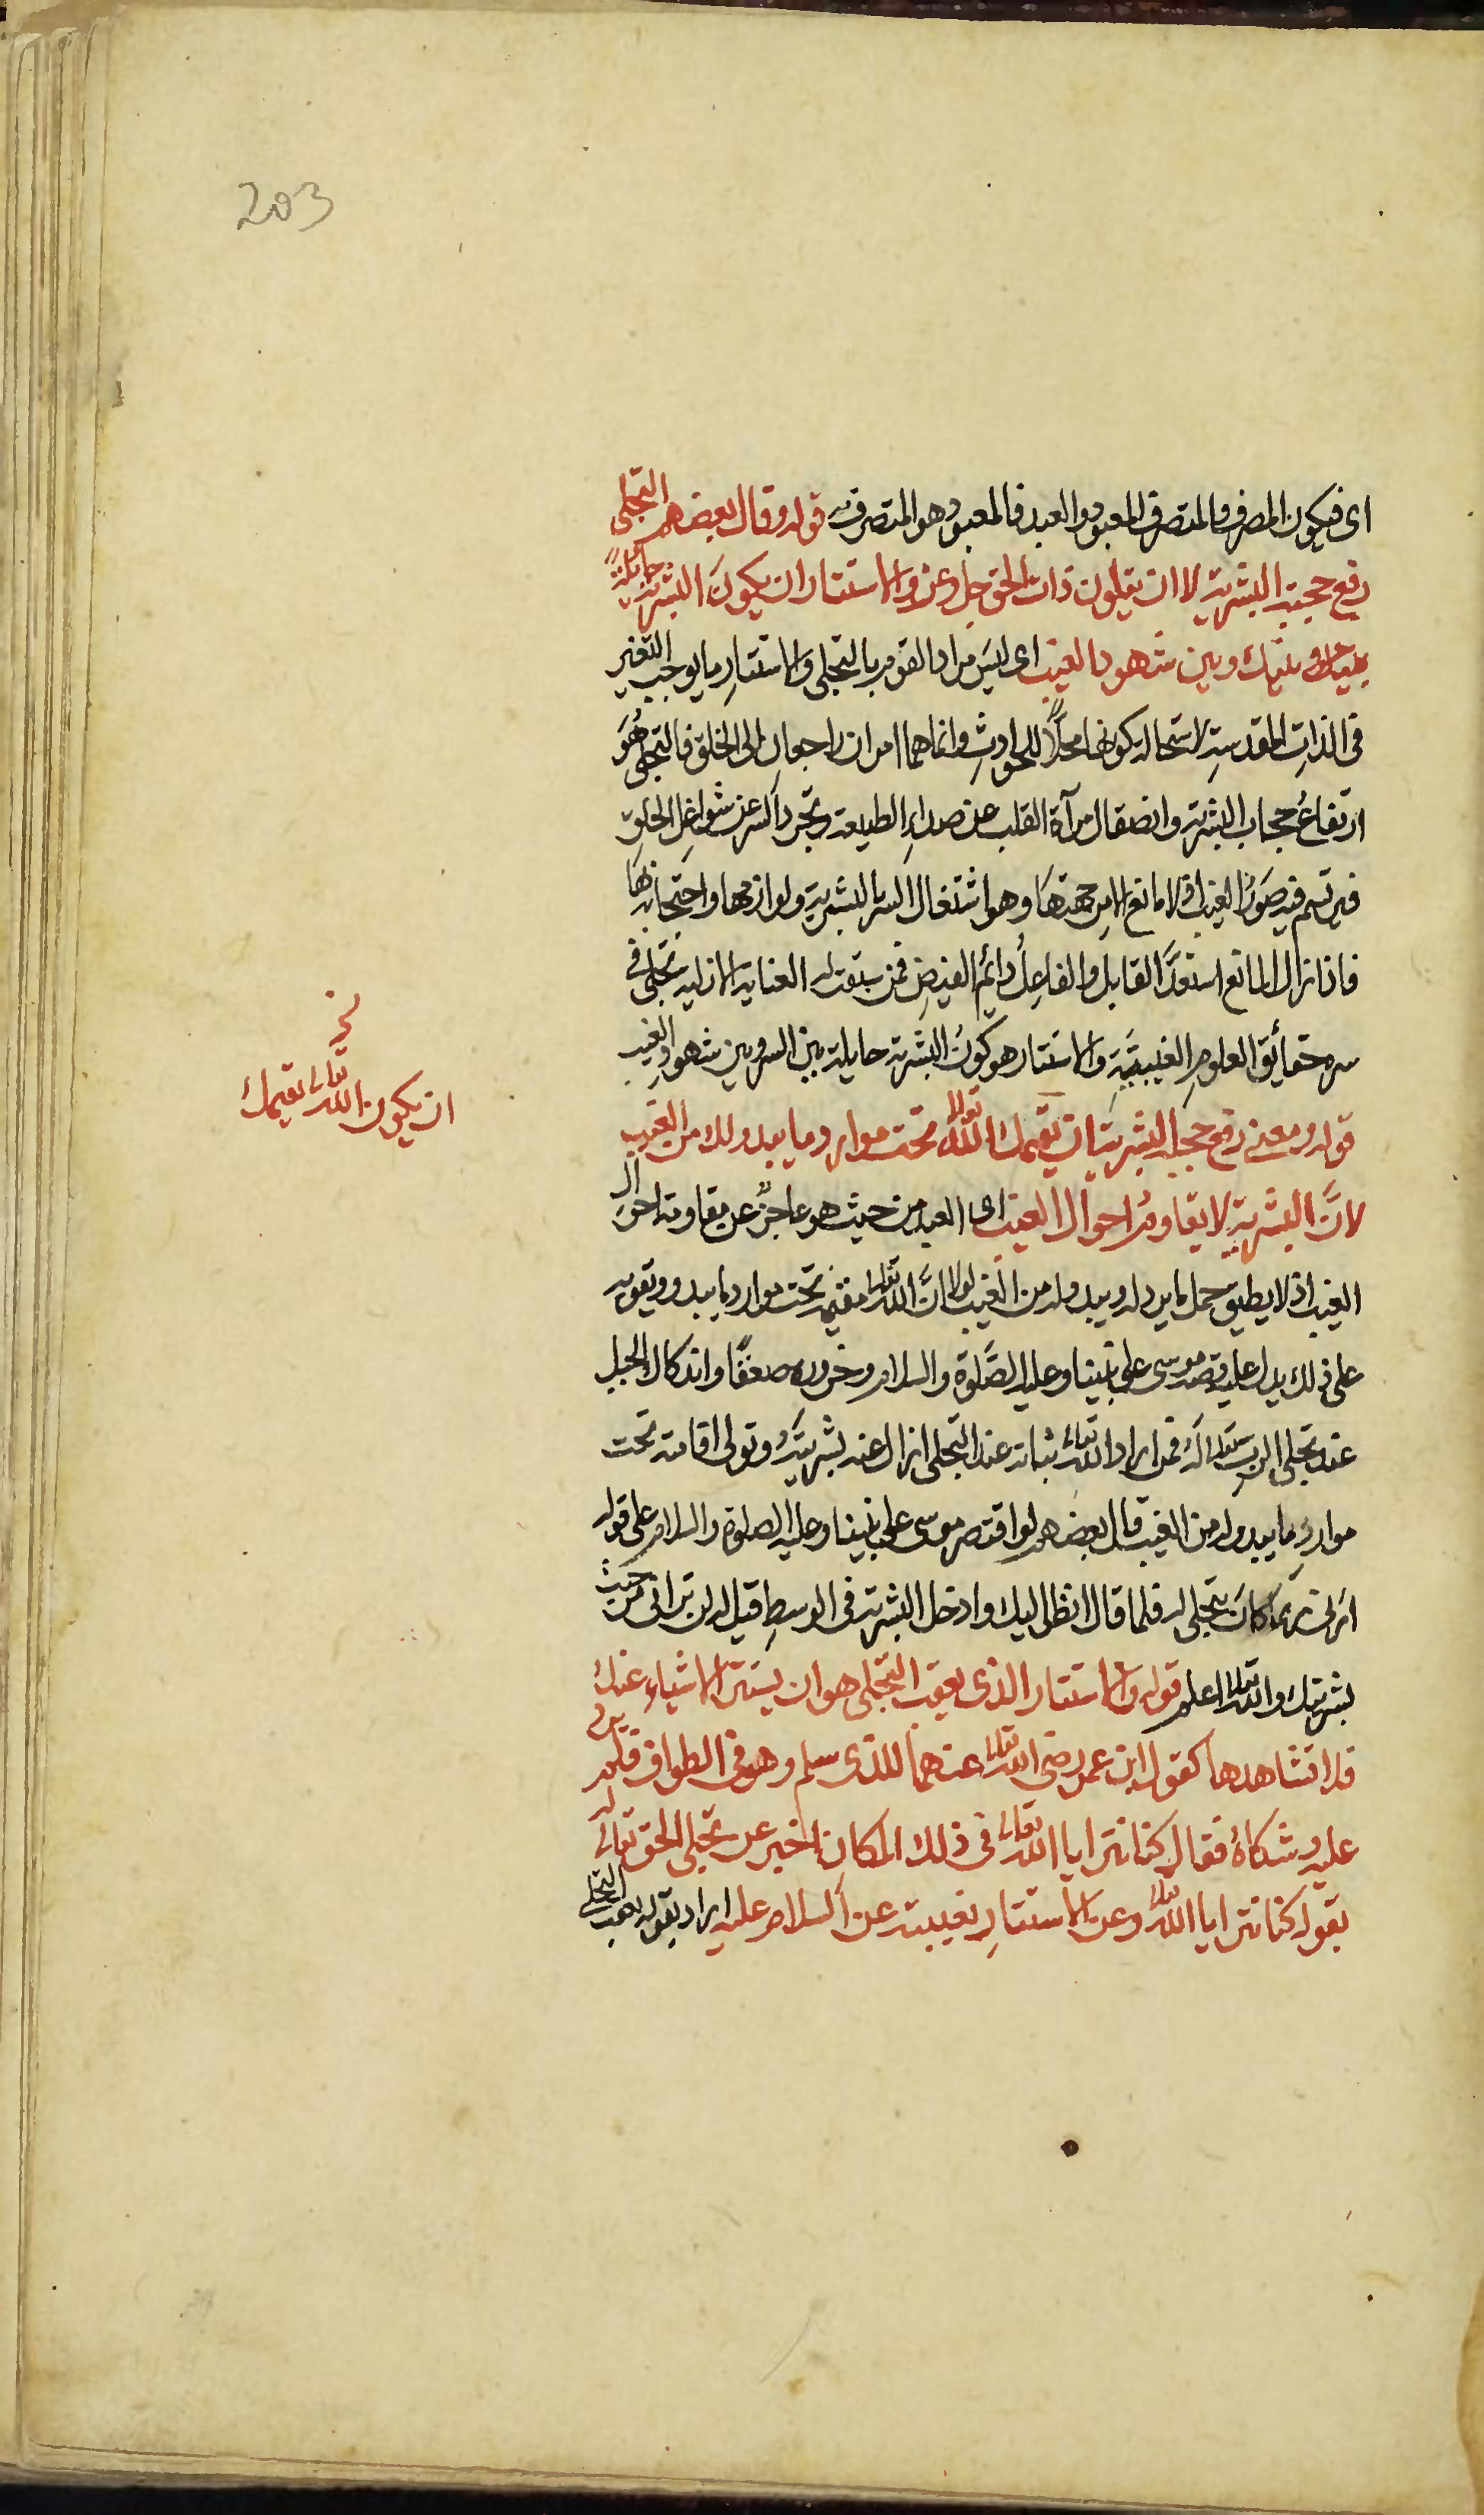 203
اى فيكون المصرف والمتصرف المعبود والعبد فالمعبود هو المتصرف قوله وقال بعضهم التجلى
رفع حجبة البشرية لا ان يتلون ذات الحق جل وعز والاستتار ان يكون البشرية حايلة
بينك وبين شهود الغيب اى ليس مراد القوم بالتجلى والاستتار ما يوجب التغير
فى الذات المقدسة لاستحالة كونها محلا للحوادث وانما هما امران راجعان الى الخلق فالتجلى هو
ارتفاع حجاب البشرية وانصقال مرآة القلب عن صداء الطبيعة وتجرد السر عن شواغل الخلق
فيرتسم فيه صور الغيب اذ لا مانع الا من جهتها وهو اشتغال السر بالبشرية ولوازمها واحتجابه بها
فاذا زال المانع استعد القابل والفاعل دائم الفيض فمن سبقت له العناية الازلية تجلى فى
سره حقائق العلوم الغيبية والاستتار هو كون البشرية حايلة بين السر وبين شهود الغيب
قوله ومعنى رفع حجبة البشرية ان يقيمك الله تعالى تحت موارد ما يبدو لك من الغيب
لان البشرية لا يقاوم احوال الغيب اى العبد من حيث هو عاجز عن مقاومة احوال
الغيب اذ لا يطيق حمل ما يرد له ويبدو له من الغيب لولا ان الله تعالى مقيمه تحت موارد ما يبدو ويقويه
على ذلك يدل عليه قصة موسى على نبينا وعليه الصلوة والسلام وخروره صعقا واندكاك الجبل
عند تجلى الرب تعالى له فمن اراد الله تعالى ثباته عند التجلى ازال عنه بشريته وتولى اقامته تحت
موارد ما يبدو له من الغيب قال بعضهم لو اقتصر موسى على نبينا وعليه الصلوة والسلام على قوله
ارنى ربما كان يتجلى له فلما قال انظر اليك وادخل البشرية فى الوسط قيل له لن ترانى من حيث
بشريتك والله تعالى اعلم قوله والاستتار الذى يعقب التجلى هو ان يستتر الاشياء عنك
فلا تشاهدها كقول ابن عمر رضى الله تعالى عنهما للذى سلم وهو فى الطواف فلم يرد
عليه وشكاه فقال كنا نترايا الله تعالى فى ذلك المكان اخبر عن تجلى الحق تعالى له
بقوله كنا نترايا الله تعالى وعن الاستتار بغيبته عن السلام عليه اراد بقوله يعقب التجلى
ان يكون الله تعالى يقيمك